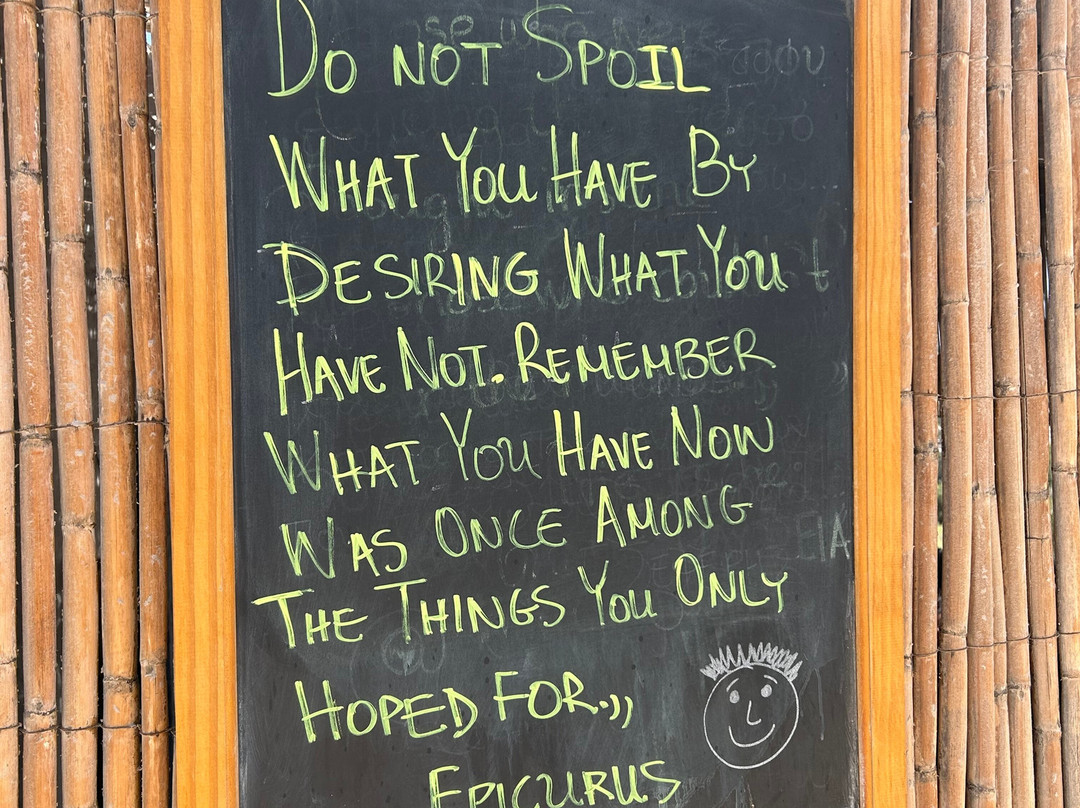 DO NOT SPOIL
WHAT YOU HAVE BY
DESIRING WHAT YOU
HAVE NOT. REMEMBER
WHAT YOU HAVE NOW
WAS ONCE AMONG
THE THINGS YOU ONLY
HOPED FOR.,,
EPICURUS